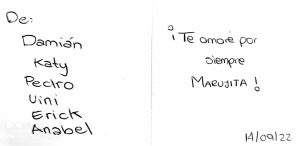 De:
Damián
Katy
Pedro
Vini
Erick
Anabel
¡Te amaré por
siempre
MARUJITA!
14/09/22